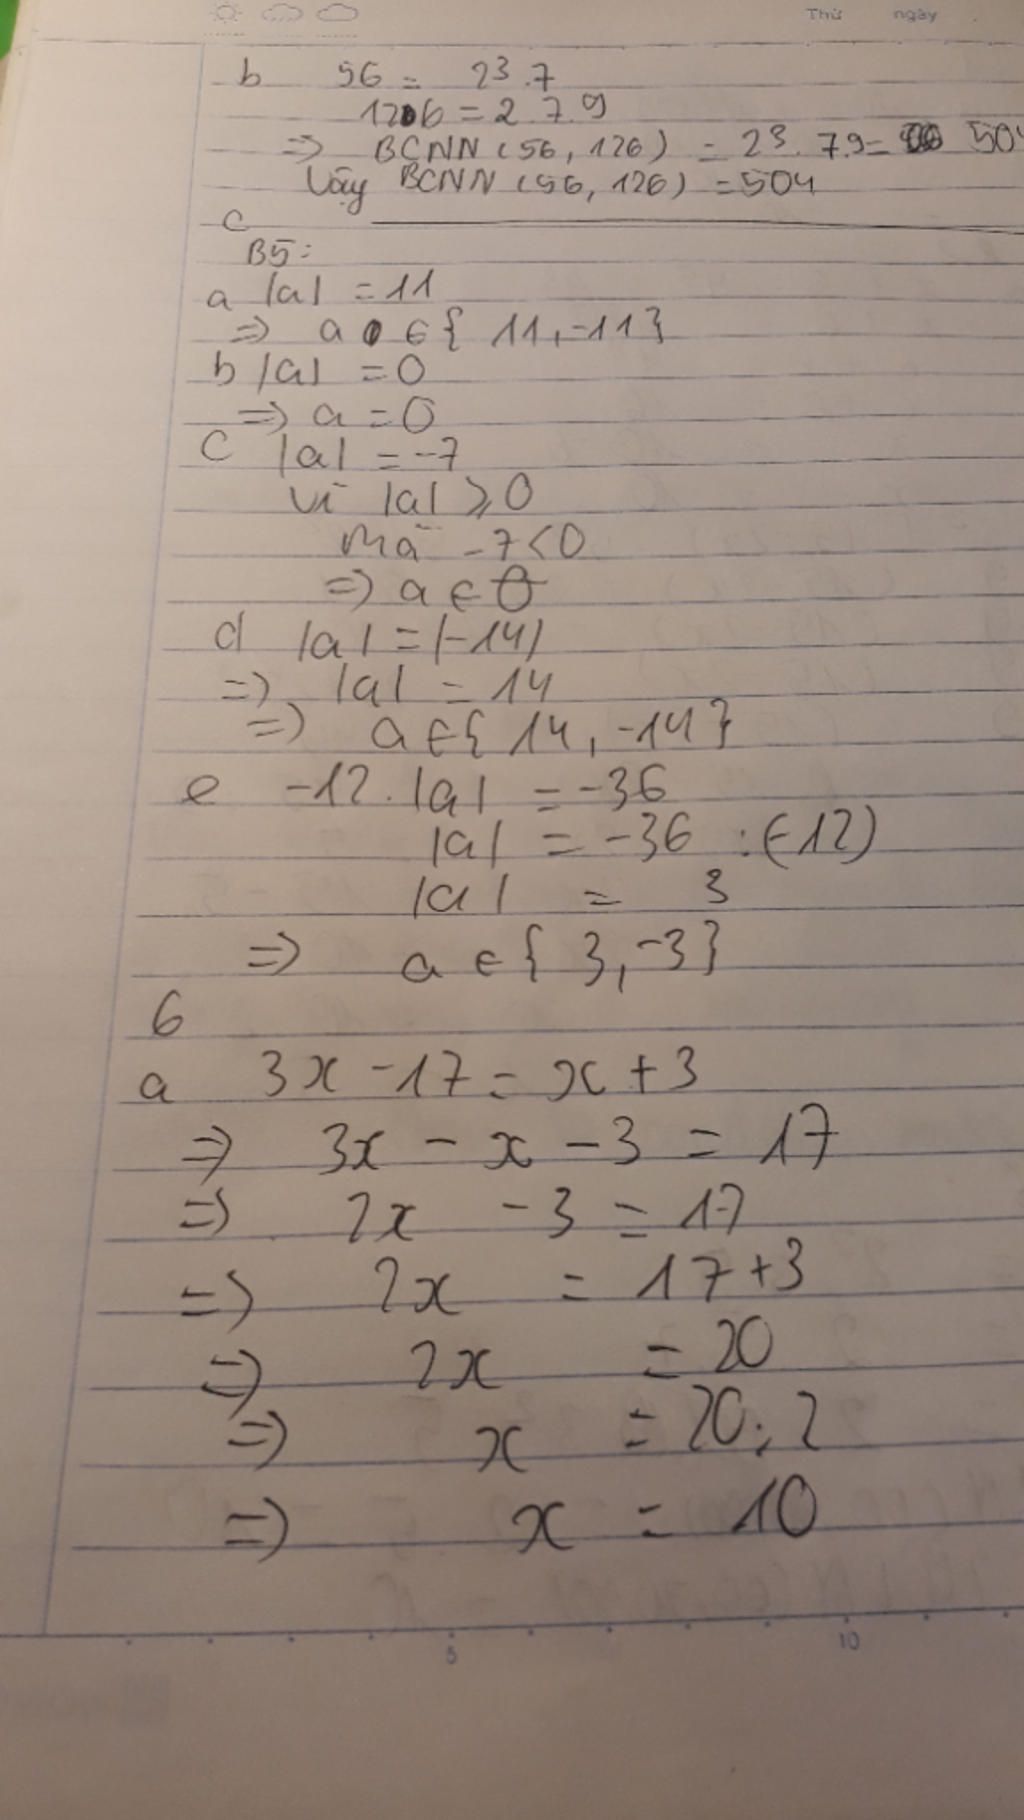 Thứ ngày
b 56 = 2³.7
126 = 2.7.9
=> BCNN (56, 126) = 2³. 7.9= 504
Vậy BCNN (56, 126) = 504
c
B5:
a |a| = 11
=> a ∈ { 11, -11}
b |a| = 0
=> a = 0
c |a| = -7
vì |a| ⩾ 0
mà -7 < 0
=> a ∈ ∅
d |a| = |-14|
=> |a| = 14
=> a ∈ { 14, -14}
e -12. |a| = -36
|a| = -36 : (-12)
|a| = 3
=> a ∈ { 3, -3}
6
a 3x - 17 = x + 3
=> 3x - x - 3 = 17
=> 2x - 3 = 17
=> 2x = 17 + 3
=> 2x = 20
=> x = 20 : 2
=> x = 10
5 10